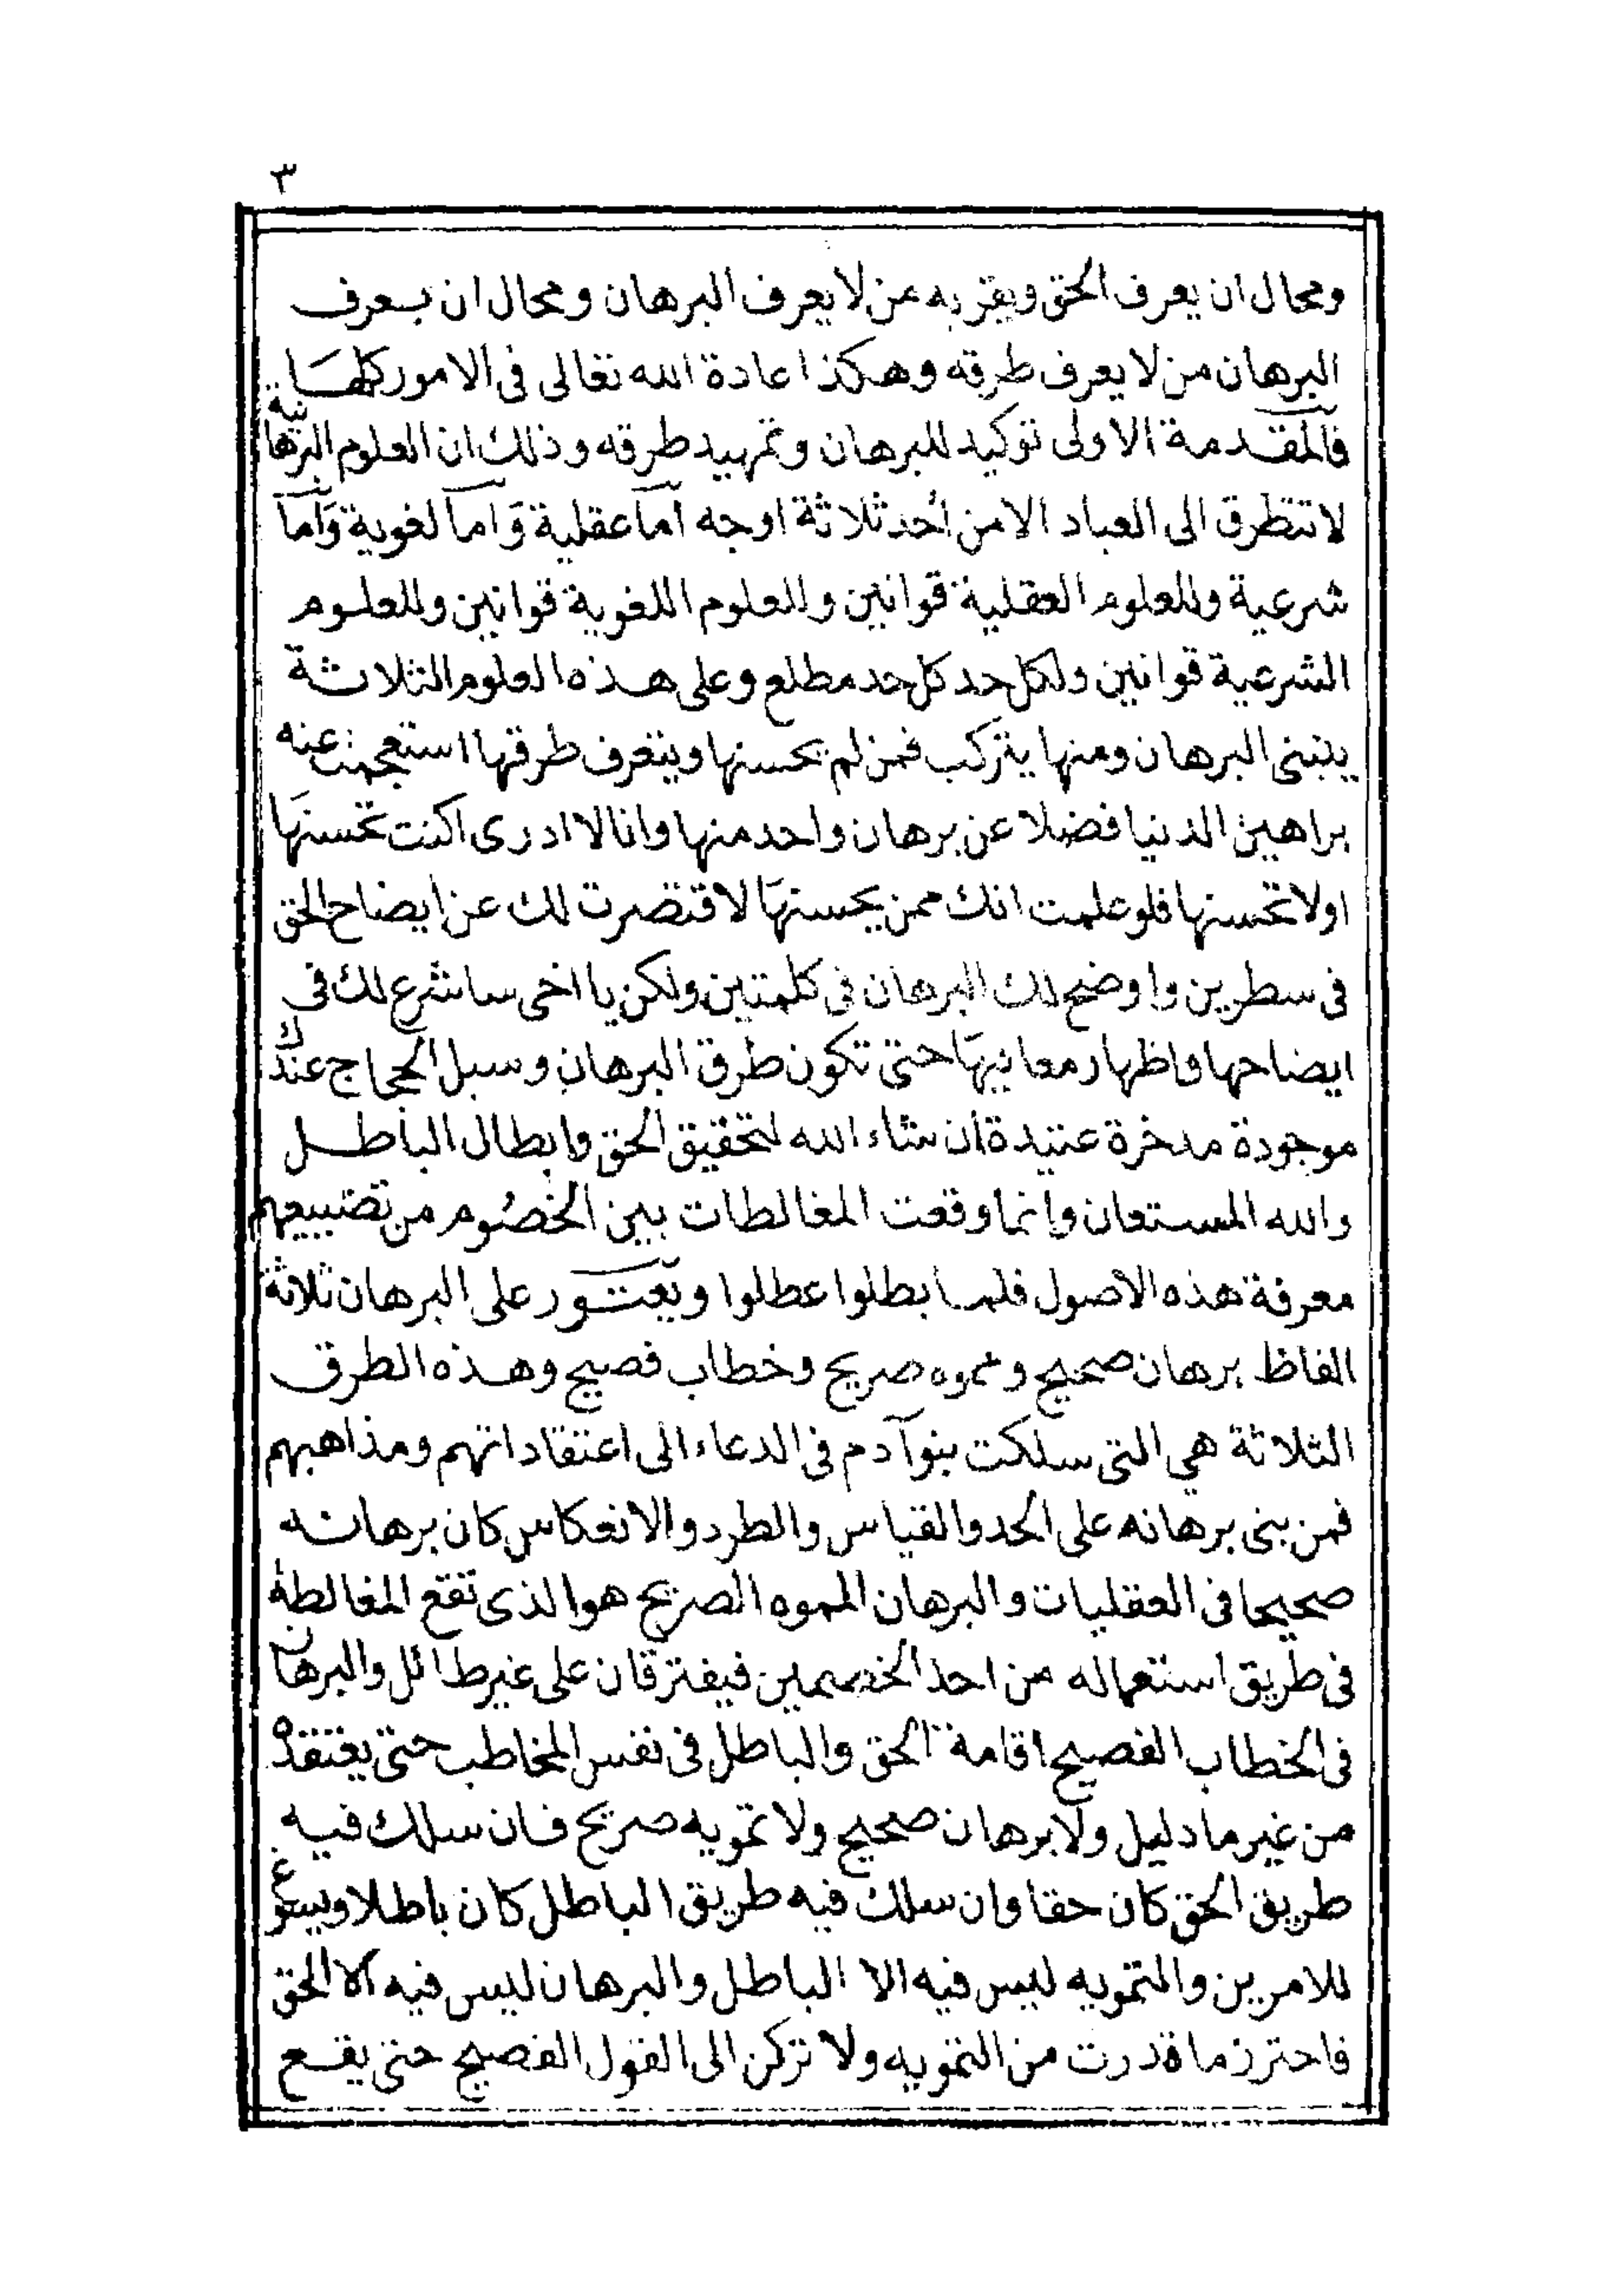 ٣
ومحال ان يعرف الحق ويقر به من لا يعرف البرهان ومحال ان يعرف
البرهان من لا يعرف طرقه وهكذا عادة الله تعالى فى الامور كلها
فالمقدمة الاولى توكيد للبرهان وتمهيد طرقه وذلك ان العلوم البرهانية
لا تتطرق الى العباد الا من أحد ثلاثة اوجه اما عقلية وَاما لغوية وَاما
شرعية وللعلوم العقلية قوانين وللعلوم اللغوية قوانين وللعلوم
الشرعية قوانين ولكل حد كل حد مطلع وعلى هذه العلوم الثلاثة
ينبنى البرهان ومنها يتركب فمن لم يحسنها ويتعرف طرقها استعجمت عنه
براهين الدنيا فضلا عن برهان واحد منها وانا لا ادرى اكنت تحسنهَا
اولا تحسنها فلو علمت انك ممن يحسنهَا لاقتصرت لك عن ايضاح الحق
فى سطرين واوضح لك البرهان فى كلمتين ولكن يا اخى سأشرع لك فى
ايضاحها واظهار معانيهَا حتى تكون طرق البرهان وسبل الحجاج عندك
موجودة مدخرة عتيدة ان شاء الله لتحقيق الحق وابطال الباطل
والله المستعان وانما وقعت المغالطات بين الخصُوم من تضييعهم
معرفة هذه الأصول فلما بطلوا عطلوا ويعتور على البرهان ثلاثة
الفاظ برهان صحيح ومموه صريح وخطاب فصيح وهذه الطرق
الثلاثة هي التى سلكت بنو آدم فى الدعاء الى اعتقاداتهم ومذاهبهم
فمن بنى برهانه على الحد والقياس والطرد والانعكاس كان برهانه
صحيحا فى العقليات والبرهان المموه الصريح هو الذى تقع المغالطة
فى طريق استعماله من احد الخصمين فيفترقان على غير طائل والبرهان
فى الخطاب الفصيح اقامة الحق والباطل فى نفس المخاطب حتى يعتقده
من غير ما دليل ولا برهان صحيح ولا تمويه صريح فان سلك فيه
طريق الحق كان حقا وان سلك فيه طريق الباطل كان باطلا ويسوغ
للامرين والتمويه ليس فيه الا الباطل والبرهان ليس فيه الا الحق
فاحترز ما قدرت من التمويه ولا تركن الى القول الفصيح حتى يقع